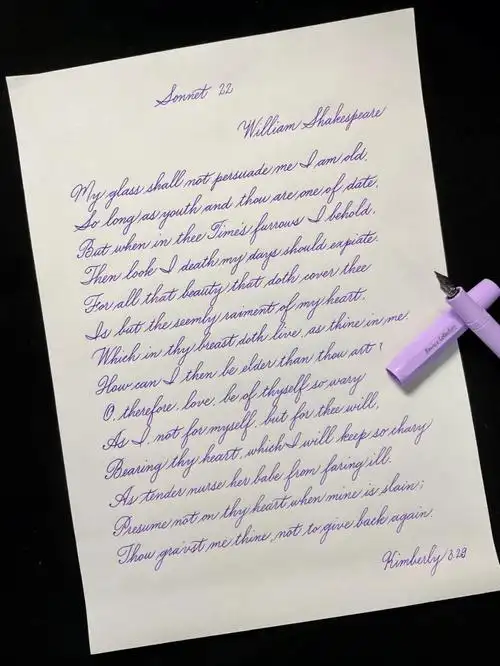 Sonnet 22
William Shakespeare
My glass shall not persuade me I am old,
So long as youth and thou are one of date,
But when in thee Time's furrows I behold,
Then look I death my days should expiate.
For all that beauty that doth cover thee
Is but the seemly raiment of my heart,
Which in thy breast doth live, as thine in me.
How can I then be elder than thou art?
O, therefore, love, be of thyself so wary
As I, not for myself, but for thee will,
Bearing thy heart, which I will keep so chary
As tender nurse her babe from faring ill.
Presume not on thy heart when mine is slain;
Thou gra'vst me thine, not to give back again.
Kimberly 3.29